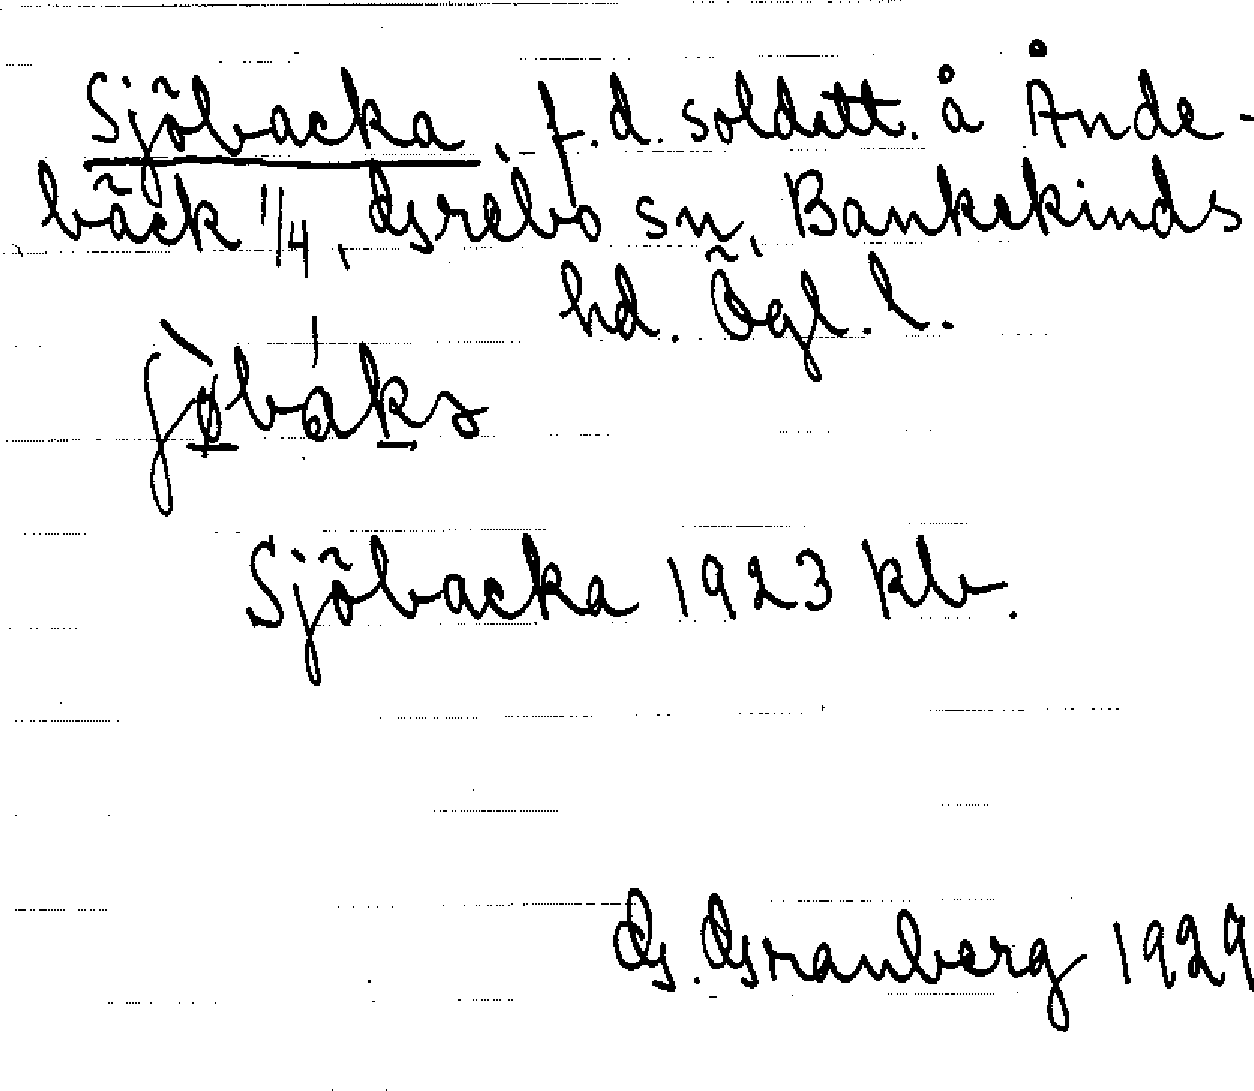 Sjöbacka, f.d. soldatt. å Ånde-
bäck 1/4, Grebo sn, Bankekinds
hd. Ögl. l.
jòbáka
Sjöbacka 1923 kb.
G. Granberg 1929